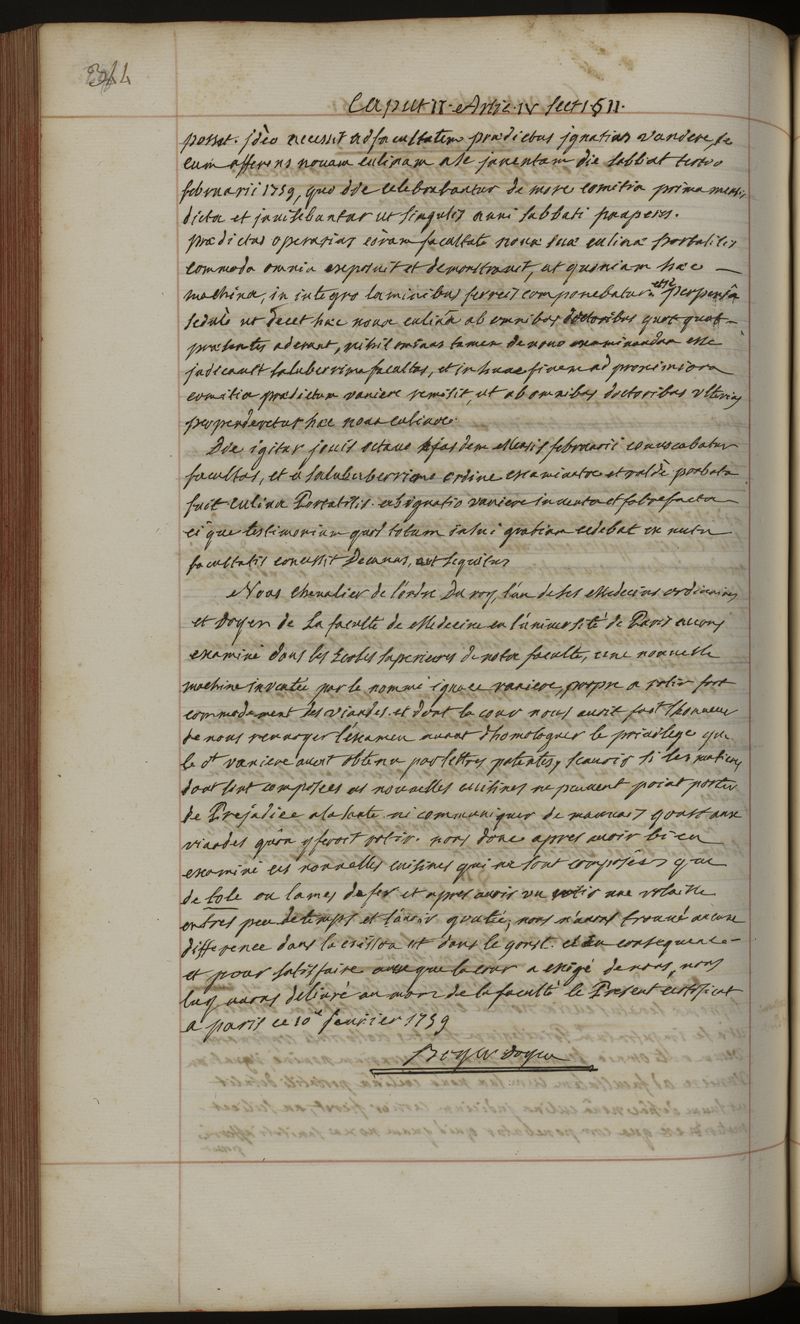 344
Caput II. Artic. IV Sect. 1 § II.
posset. ideo accessit ad facultatem prædictus ignatius vaniere, se
cum afferens novam culinam a se inventam die sabbat tertio
februarii 1759, quo die celebrabantur de more comitia prima mensis
dicta et invisebantur ut singulis anni sabbati pauperes.
prædictus operarius coram facultate novæ suæ culinæ portatilis
commoda omnia exposuit et demonstravit, at quoniam hæc
machina, in integro laminibus ferreis componebatur etsi perpensa
sedulo ut decet hæc nova culina ab omnibus doctoribus quotquot
præsentes aderant, nihil ominus tamen de novo examinandam esse
judicavit saluberrima facultas, et in hunc finem ad proximiora
comitia prædictum vaniere remisit, ut ab omnibus doctoribus ulterius
perpenderetur hæc nova culina.
Die igitur jovis octavo ejusdem mensis februarii convocabatur
facultas, et a saluberrimo ordine examinata et valde probata
fuit culina Portatilis ab ignatio vaniere inventa et fabrefacta
eique testimonium quod totum in sui gratiam cedebat ex nutu
facultatis concessit Decanus, ut sequitur
Nous chevalier de l'ordre Du roy, l'un de ses Medecins ordinaires
et Doyen de La faculté de Medecine en l'université de Paris avons
examiné dans les Ecoles superieures de notre faculté, une nouvelle
machine inventée par le nommé ignace vaniere, propre a rotir fort
commodement des viandes. et dont la cour nous avoit fait l'honneur
de nous renvoyer l'éxamen avant d'homologuer le privilege que
le dt vaniere avoit obtenu par lettres patentes, sçavoir si les matieres
dont sont composées ces nouvelles cuisines ne peuvent point porter
de Prejudice a la santé ni communiquer de mauvais goust aux
viandes qu'on y feroit rotir. nous donc apres avoir bien
examiné ces nouvelles cuisines qui ne sont composées que
de tole ou lames de fer et apres avoir vu rotir une volaille
en tres peu de temps et l'avoir goutée, nous n'avons trouvé aucune
difference dans la cuisson et dans le goust. et en consequence
et pour satisfaire a ce que la cour a exigé de nous, nous
luy avons délivré au nom de la faculté le Present certificat
a paris ce 10e fevrier 1759
Boyer doyen